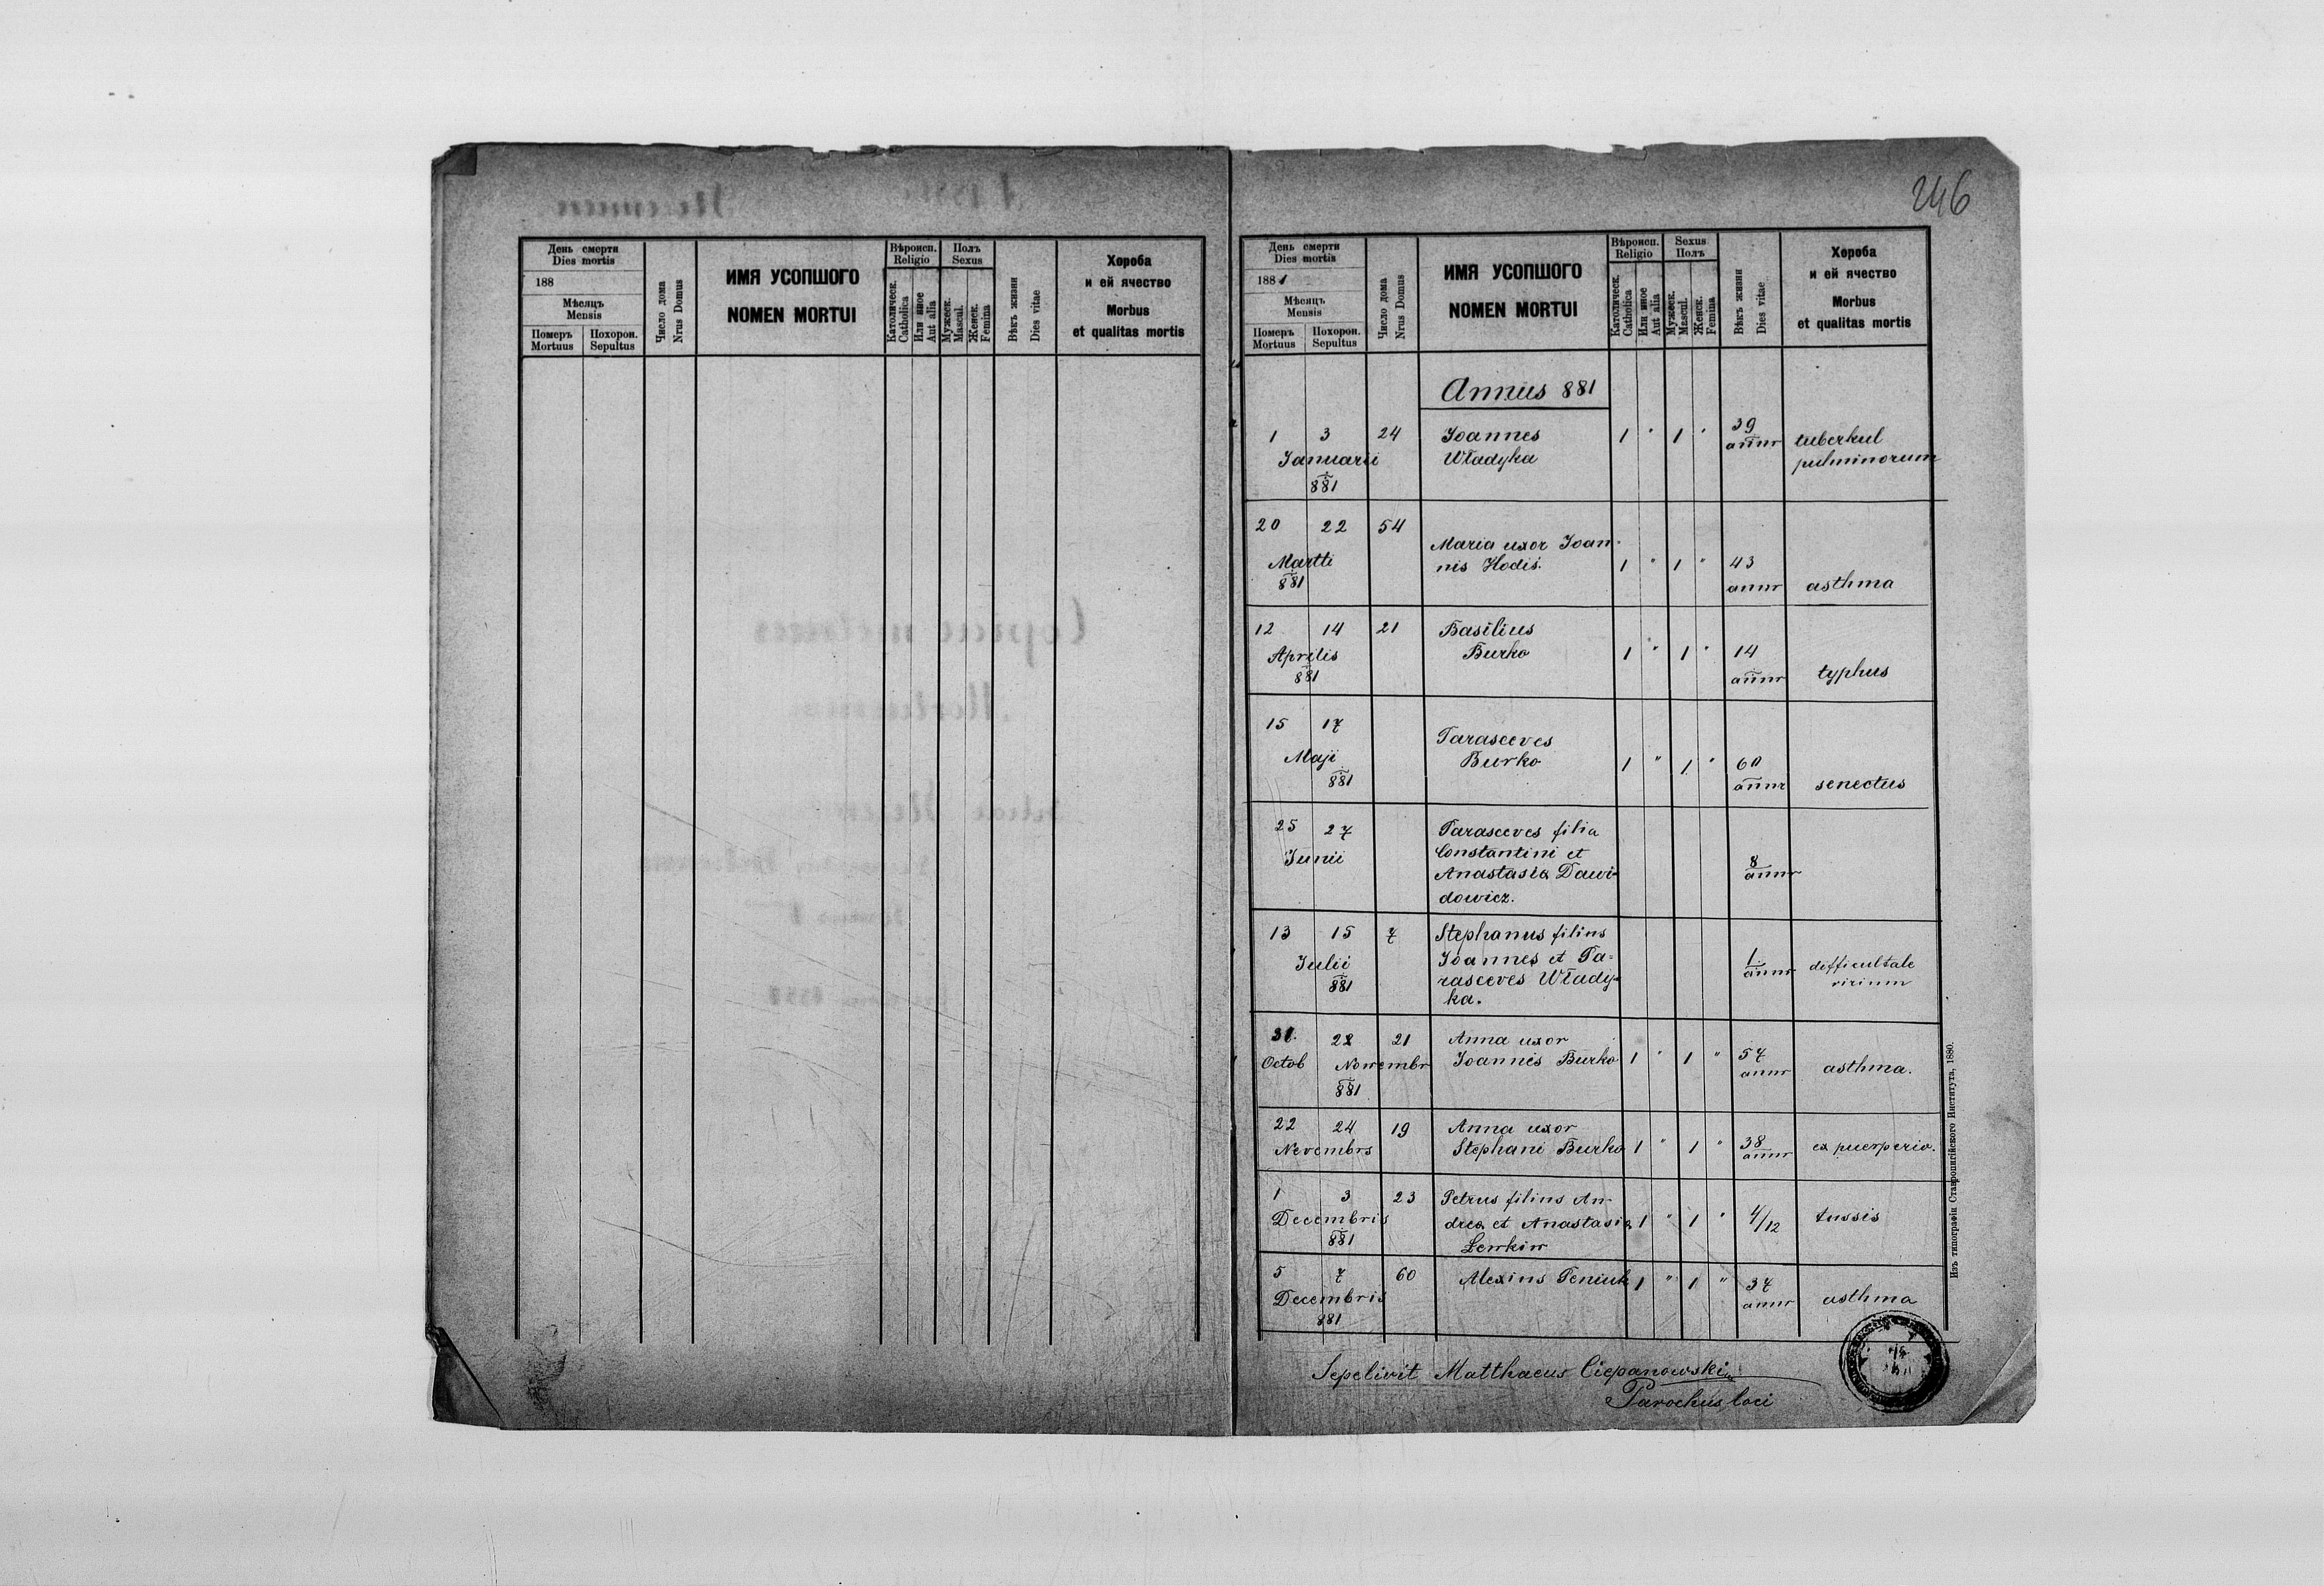 246
День смерти
Dies mortis
188
Мѣсяцъ
Mensis
Померъ
Mortuus
Похорон.
Sepultus
Число дома
Nrus Domus
ИМЯ УСОПШОГО
NOMEN MORTUI
Вѣроисп.
Religio
Католическ.
Catholica
Или иное
Aut alia
Полъ
Sexus
Мужеск.
Mascul.
Женск.
Femina
Вѣкъ жизни
Dies vitae
Хороба
и ей ячество
Morbus
et qualitas mortis
День смерти
Dies mortis
1881
Мѣсяцъ
Mensis
Померъ
Mortuus
Похорон.
Sepultus
Число дома
Nrus Domus
ИМЯ УСОПШОГО
NOMEN MORTUI
Вѣроисп.
Religio
Католическ.
Catholica
Или иное
Aut alia
Sexus
Полъ
Мужеск.
Mascul.
Женск.
Femina
Вѣкъ жизни
Dies vitae
Хороба
и ей ячество
Morbus
et qualitas mortis
Annus 881
1 3 24 Joannes 1 " 1 " 39 tuberkul
Januarii Władyka annr pulminorum
881
20 22 54 Maria uxor Joan-
Martii nis Hodis. 1 " 1 " 43
881 annr asthma
12 14 21 Basilius
Aprilis Burko 1 " 1 " 14
881 annr typhus
15 17 Parasceves
Maji Burko 1 " 1 " 60
881 annr senectus
25 27 Parasceves filia
Junii Constantini et 8
Anastasia Dawi- annr
dowicz.
13 15 7 Stephanus filius
Julii Joannes et Pa= 1 difficultate
881 rasceves Włady= annr virium
ka.
31. 22 21 Anna uxor
Octob Novembr Joannis Burko 1 " 1 " 57 asthma.
881 annr
22 24 19 Anna uxor
Novembrs Stephani Burko 1 " 1 " 38 ex puerperio.
annr
1 3 23 Petrus filius An-
Decembris drea et Anastasia 1 " 1 " 4/12 tussis
881 Lewkiw
5 7 60 Alexius Peniuk 1 " 1 " 37
Decembris annr asthma
881
Sepelivit Matthaeus Ciepanowski
Parochus loci
Изъ типографіи Ставропигійского Института, 1880.